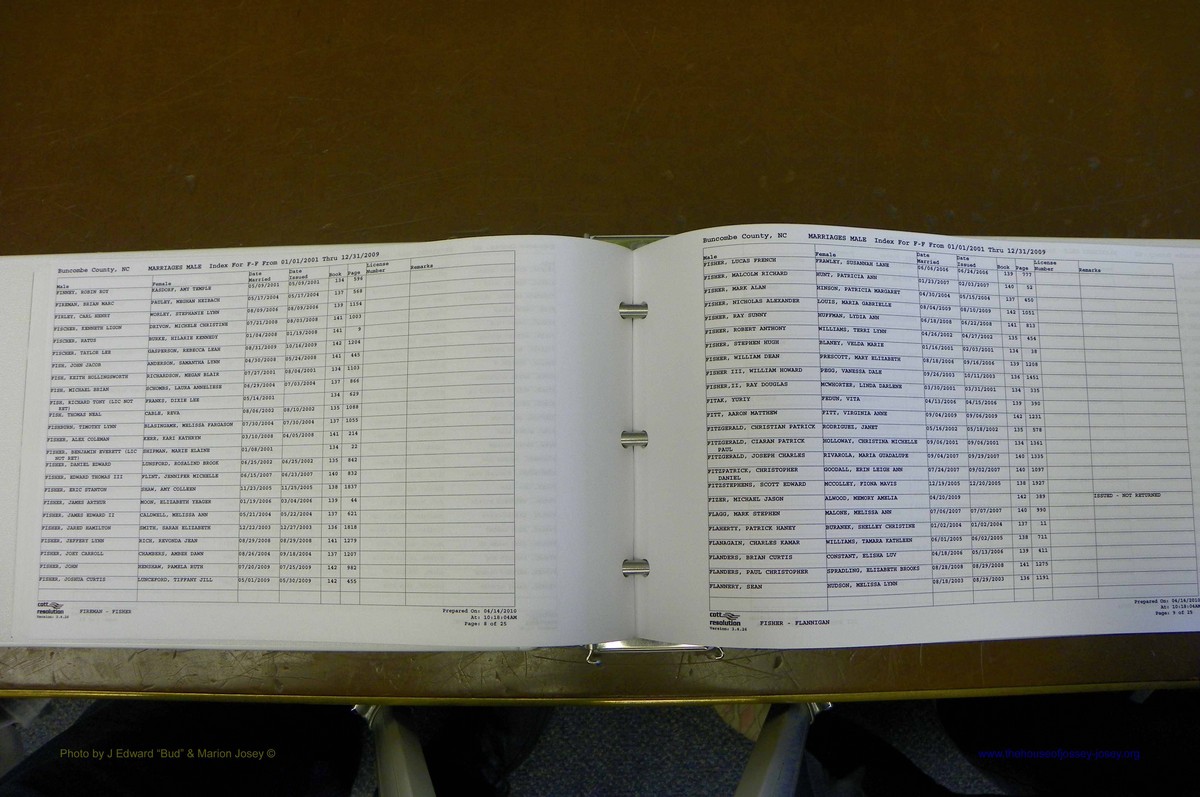 Buncombe County, NC MARRIAGES MALE Index For F-F From 01/01/2001 Thru 12/31/2009
Male Female Date Married Date Issued Book Page License Number Remarks
FINNEY, ROBIN ROY KASDORF, AMY TEMPLE 05/09/2001 05/09/2001 134 596
FIREMAN, BRIAN MARC PAULEY, MEGHAN 05/17/2004 05/17/2004 137 568
FIRLEY, CARL HENRY WORLEY, STEPHANIE LYNN 08/09/2006 08/09/2006 139 1154
FISCHER, KENNETH DEIVON, MICHELE CHRISTINE 07/21/2008 08/03/2008 141 1003
FISCHER, BURKE, HILARIE KENNEDY 01/04/2008 01/19/2008 141 9
FISCHER, TAYLOR LEE GASPERSON, REBECCA LEAH 08/31/2009 10/16/2009 142 1204
FISH, JOHN JACOB ANDERSON, SAMANTHA LYNN 04/30/2008 05/24/2008 141 445
FISH, KEITH HOLLINGSWORTH RICHARDSON, MEGAN BLAIR 07/27/2001 08/04/2001 134 1103
FISH, MICHAEL BRIAN SCHOMBS, LAURA ANNELIESE 06/29/2004 07/03/2004 137 866
FISH, RICHARD TONY (LIC NOT FRANKS, DIXIE LEE 05/14/2001 134 629
RET)
FISH, THOMAS NEAL CABLE, REVA 08/06/2002 08/10/2002 135 1088
FISHBURN, TIMOTHY LYNN BLASINGAME, MELISSA FARGASON 07/30/2004 07/30/2004 137 1055
FISHER, ALEX COLEMAN KERR, KARI KATHRYN 03/10/2008 04/05/2008 141 214
FISHER, BENJAMIN EVERETT (LIC SHIPMAN, MARIE ELAINE 01/08/2001 134 22
NOT RET)
FISHER, DANIEL EDWARD LUNSFORD, ROSALIND BROOK 06/20/2002 06/25/2002 135 842
FISHER, EDWARD THOMAS III FLINT, JENNIFER MICHELLE 06/15/2007 06/23/2007 140 832
FISHER, ERIC STANTON SHAW, AMY COLLEEN 11/23/2005 11/25/2005 138 1837
FISHER, JAMES ARTHUR MOON, ELIZABETH YEAGER 01/19/2006 03/04/2006 139 44
FISHER, JAMES EDWARD II CALDWELL, MELISSA ANN 05/21/2004 05/22/2004 137 621
FISHER, JARED HAMILTON SMITH, SARAH ELIZABETH 12/22/2003 12/27/2003 136 1818
FISHER, JEFFERY LYNN RICH, REVONDA JEAN 08/29/2008 08/29/2008 141 1279
FISHER, JOEY CARROLL CHAMBERS, AMBER DAWN 08/26/2004 09/18/2004 137 1207
FISHER, JOHN HENSHAW, PAMELA RUTH 07/20/2009 07/25/2009 142 882
FISHER, JOSHUA CURTIS LUNCEFORD, TIFFANY JILL 05/01/2009 05/30/2009 142 455
cott resolution
Version: 3.4.26
FIREMAN - FISHER
Prepared On: 04/14/2010
At: 10:18:04AM
Page: 8 of 25
Buncombe County, NC MARRIAGES MALE Index For F-F From 01/01/2001 Thru 12/31/2009
Male Female Date Married Date Issued Book Page License Number Remarks
FISHER, LUCAS FRENCH FRAWLEY, SUSANNAH LANE 06/06/2006 06/24/2006 139 777
FISHER, MALCOLM RICHARD HUNT, PATRICIA ANN 01/23/2007 02/01/2007 140 52
FISHER, MARK ALAN HINSON, PATRICIA MARGARET 04/30/2006 05/15/2004 137 450
FISHER, NICHOLAS ALEXANDER LOUIS, MARIA GABRIELLE 08/04/2009 08/10/2009 142 1051
FISHER, RAY SUNNY HUFFMAN, LYDIA ANN 06/18/2008 06/22/2008 141 813
FISHER, ROBERT ANTHONY WILLIAMS, TERRI LYNN 04/26/2002 04/27/2002 135 454
FISHER, STEPHEN HUGH BLANEY, VELDA MARIE 01/16/2001 02/03/2001 134 38
FISHER, WILLIAM DEAN PRESCOTT, MARY ELIZABETH 08/18/2006 09/16/2006 139 1208
FISHER III, WILLIAM HOWARD PEGG, VANESSA DALE 09/26/2003 10/11/2003 136 1451
FISHER,II, RAY DOUGLAS MCWHORTER, LINDA DARLENE 03/30/2001 03/31/2001 134 335
FITAK, YURIY FEDUN, VITA 04/13/2006 04/15/2006 139 392
FITT, AARON MATTHEW FITT, VIRGINIA ANNE 09/04/2009 09/06/2009 142 1231
FITZGERALD, CHRISTIAN PATRICK RODRIGUES, JANET 05/16/2002 05/18/2002 135 578
FITZGERALD, CIARAN PATRICK HOLLOWAY, CHRISTINA MICHELLE 09/06/2001 09/06/2001 134 1361
PAUL
FITZGERALD, JOSEPH CHARLES RIVAROLA, MARIA GUADALUPE 09/04/2007 09/29/2007 140 1335
FITZPATRICK, CHRISTOPHER GOODALL, ERIN LEIGH ANN 07/24/2007 09/02/2007 140 1097
DANIEL
FITZSTEPHENS, SCOTT EDWARD MCCOLLEY, FIONA MAVIS 12/19/2005 12/20/2005 138 1927
FIZER, MICHAEL JASON ALWOOD, MEMORY AMELIA 04/20/2009 142 389 ISSUED - NOT RETURNED
FLAGG, MARK STEPHEN MALONE, MELISSA ANN 07/06/2007 07/07/2007 140 990
FLAHERTY, PATRICK HANEY BURANEK, SHELLEY CHRISTINE 01/02/2004 01/02/2004 137 11
FLANAGAIN, CHARLES KAMAR WILLIAMS, TAMARA KATHLEEN 06/01/2005 06/02/2005 138 711
FLANDERS, BRIAN CURTIS CONSTANT, ELISHA LUV 04/18/2006 05/13/2006 139 411
FLANDERS, PAUL CHRISTOPHER SPRADLING, ELIZABETH BROOKS 08/28/2008 08/29/2008 141 1275
FLANNERY, SEAN HUDSON, MELISSA LYNN 08/18/2003 08/29/2003 136 1191
cott resolution
Version: 3.4.26
FISHER - FLANNIGAN
Prepared On: 04/14/2010
At: 10:18:04AM
Page: 9 of 25
Photo by J Edward "Bud" & Marion Josey ©
www.thehouseofjossey-josey.org